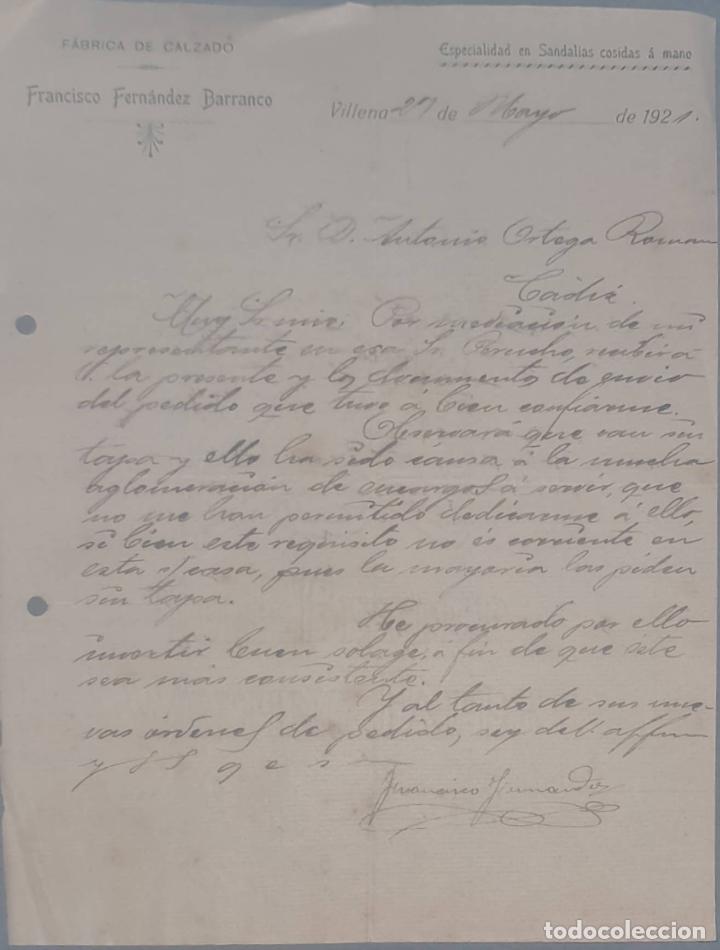 FÁBRICA DE CALZADO
Especialidad en Sandalias cosidas á mano
Francisco Fernández Barranco
Villena 27 de Mayo de 1921.
Sr. D. Antonio Ortega Roman
Cádiz.
Muy Sr. mio: Por mediación de mi
representante en esa Sr. Perucho, recibirá
V. la presente y los documentos de envio
del pedido que tuvo á bien confiarme.
Observará que van sin
tapa y ello ha sido causa á la mucha
aglomeración de encargos á servir, que
no me han permitido dedicarme á ello,
si bien este requisito no es corriente en
esta s/casa, pues la mayoria las piden
sin tapa.
He procurado por ello
invertir buen solage, á fin de que éste
sea más consistente.
Y al tanto de sus nue-
vas órdenes de pedido, soy de V. affmo
y s s q e s
Francisco Fernandez
todocoleccion